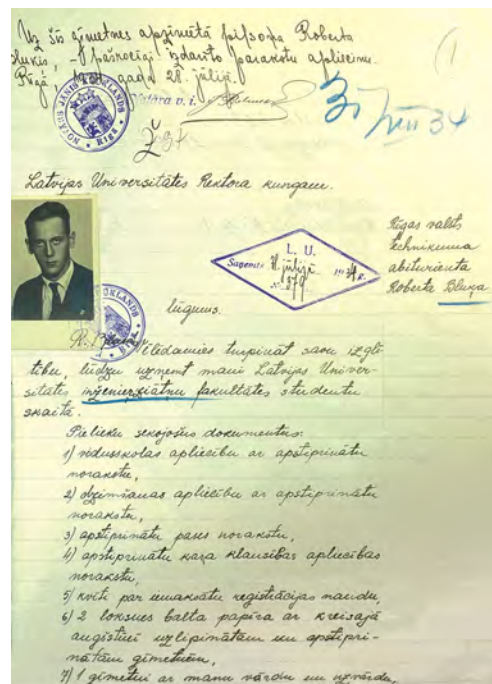 Uz šīs ģīmetnes apzīmētā pilsoņa Roberta
Blukis, pašrocīgi izdarīto parakstu apliecinu.
Rīgā, 1934 gada 28. jūlijā.
Notāra v. i.
NOTARS JĀNIS KRĒKLANDS
RIGA
Latvijas Universitātes Rektora kungam.
Rīgas valsts
technikuma
abiturienta
Roberta Bluķa
L. U.
Saņemts 31. jūlijā 1934 g.
№ 1979
lūgums.
Vēlēdamies turpināt savu izglī-
tību, lūdzu uzņemt mani Latvijas Univer-
sitātes inženierzinātņu fakultātes studentu
skaitā.
Pielieku sekojošus dokumentus:
1) vidusskolas apliecību ar apstiprinātu
norakstu,
2) dzimšanas apliecību ar apstiprinātu
norakstu,
3) apstiprinātu pases norakstu,
4) apstiprinātu kara klausības apliecības
norakstu,
5) kvīti par iemaksātu reģistrācijas naudu,
6) 2 loksnes balta papīra ar kreisajā
augšstūrī uzlīpinātām un apstipri-
nātām ģīmetnēm,
7) 1 ģīmetni ar manu vārdu un uzvārdu,